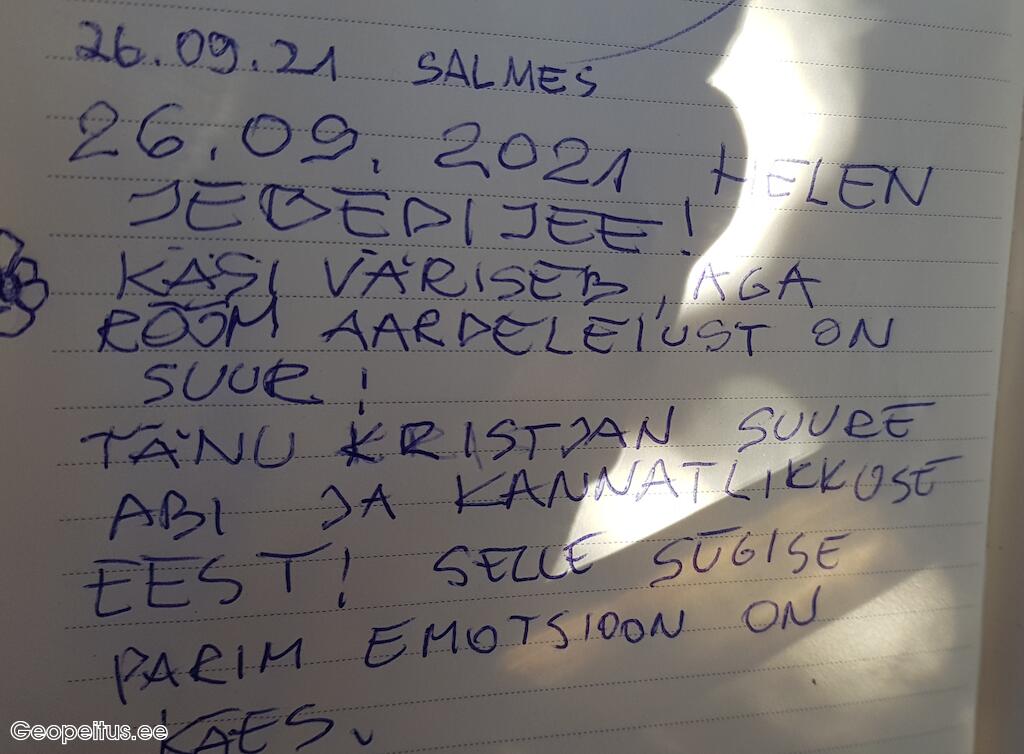 26.09.21 SALMES
26.09.2021 HELEN
JEBEDIJEE!
KÄSI VÄRISEB, AGA
RÕÕM AARDELEIUST ON
SUUR!
TÄNU KRISTJAN SUURE
ABI JA KANNATLIKKUSE
EEST! SELLE SÜGISE
PARIM EMOTSIOON ON
KÄES.
Geopeitus.ee